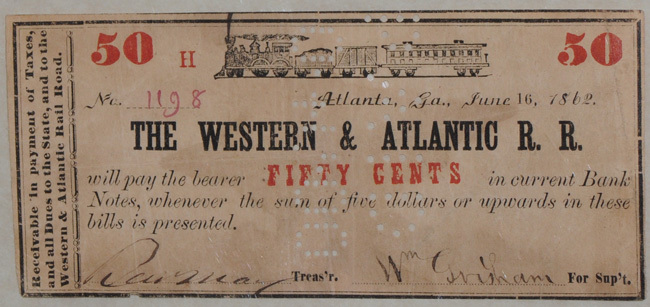 Receivable in payment of Taxes,
and all Dues to the State, and to the
Western & Atlantic Rail Road.
50 H 50
No. 1198 Atlanta, Ga., June 16, 1862.
THE WESTERN & ATLANTIC R. R.
will pay the bearer FIFTY CENTS in current Bank
Notes, whenever the sum of five dollars or upwards in these
bills is presented.
Treas'r. Wm For Sup't.